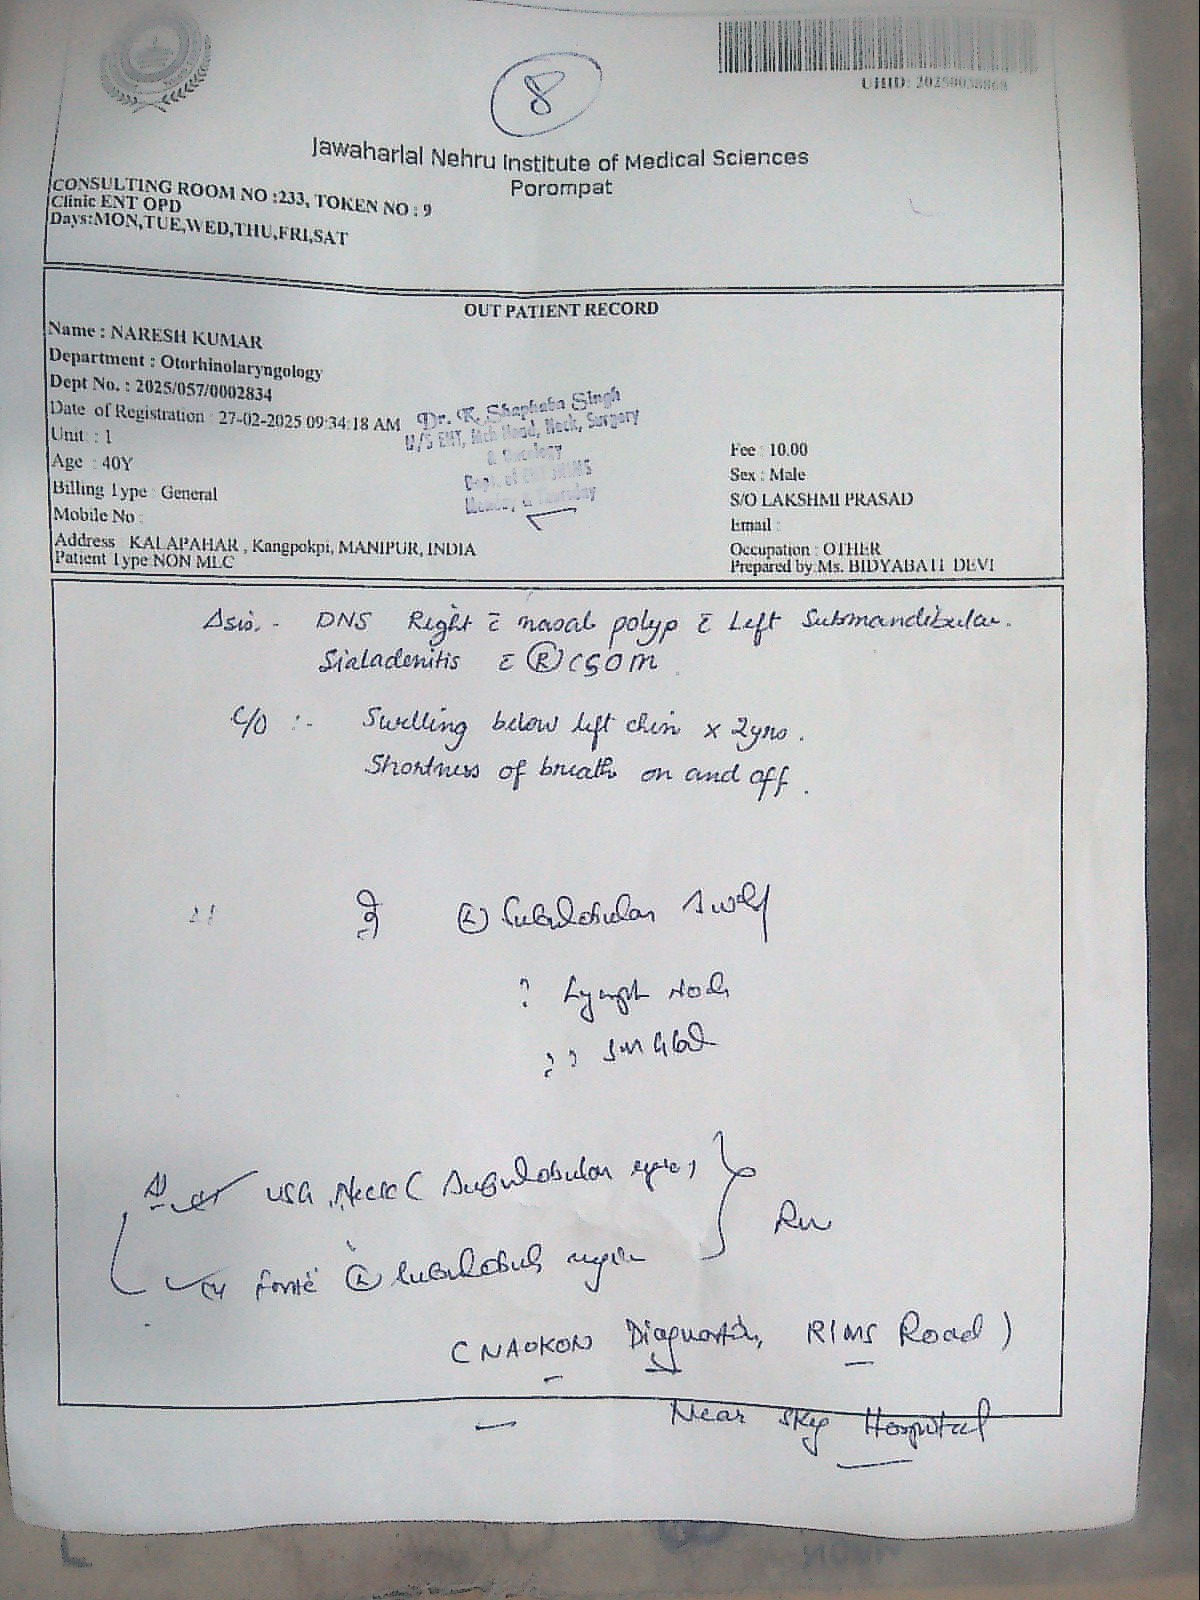 8
UHID: 20250038868
Jawaharlal Nehru Institute of Medical Sciences
Porompat
CONSULTING ROOM NO :233, TOKEN NO : 9
Clinic ENT OPD
Days:MON,TUE,WED,THU,FRI,SAT
OUT PATIENT RECORD
Name : NARESH KUMAR
Department : Otorhinolaryngology
Dept No. : 2025/057/0002834
Date of Registration : 27-02-2025 09:34:18 AM
Unit : 1
Age : 40Y
Billing Type : General
Mobile No :
Address KALAPAHAR , Kangpokpi, MANIPUR, INDIA
Patient Type:NON MLC
Dr. K. Shaphaba Singh
M/S ENT, Mch Head, Neck, Surgery
& Oncology
Dept. of ENT JNIMS
Monday & Thursday
Fee : 10.00
Sex : Male
S/O LAKSHMI PRASAD
Email :
Occupation : OTHER
Prepared by:Ms. BIDYABATI DEVI
DNS Right c̄ nasal polyp c̄ Left Submandibular.
Sialadenitis c̄ (R) CSOM
C/O :- Swelling below left chin x 2yrs.
Shortness of breath on and off.
(L) Submandibular
? Lymph Node
??
USG Neck (Submandibular
(L) Submandibular region
(NAOKON Diagnostic, RIMS Road)
Near Sky Hospital